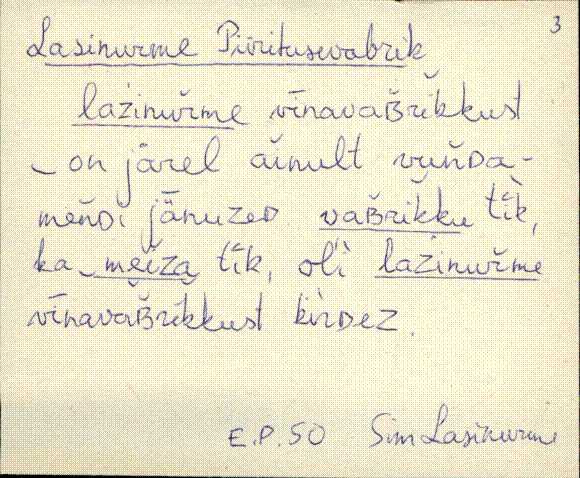 3
Lasinurme Piiritusevabrik
lažinuřme vīnavaʙřikkust
‿on jäŕel aińult vuńᴅa-
meńᴅi jänuzeᴅ vaʙřikku tīk,
ka‿meiza tīk, oĺi lažinuřme
vīnavaʙřikkust kirᴅez.
E.P. 50 Sim Lasinurme